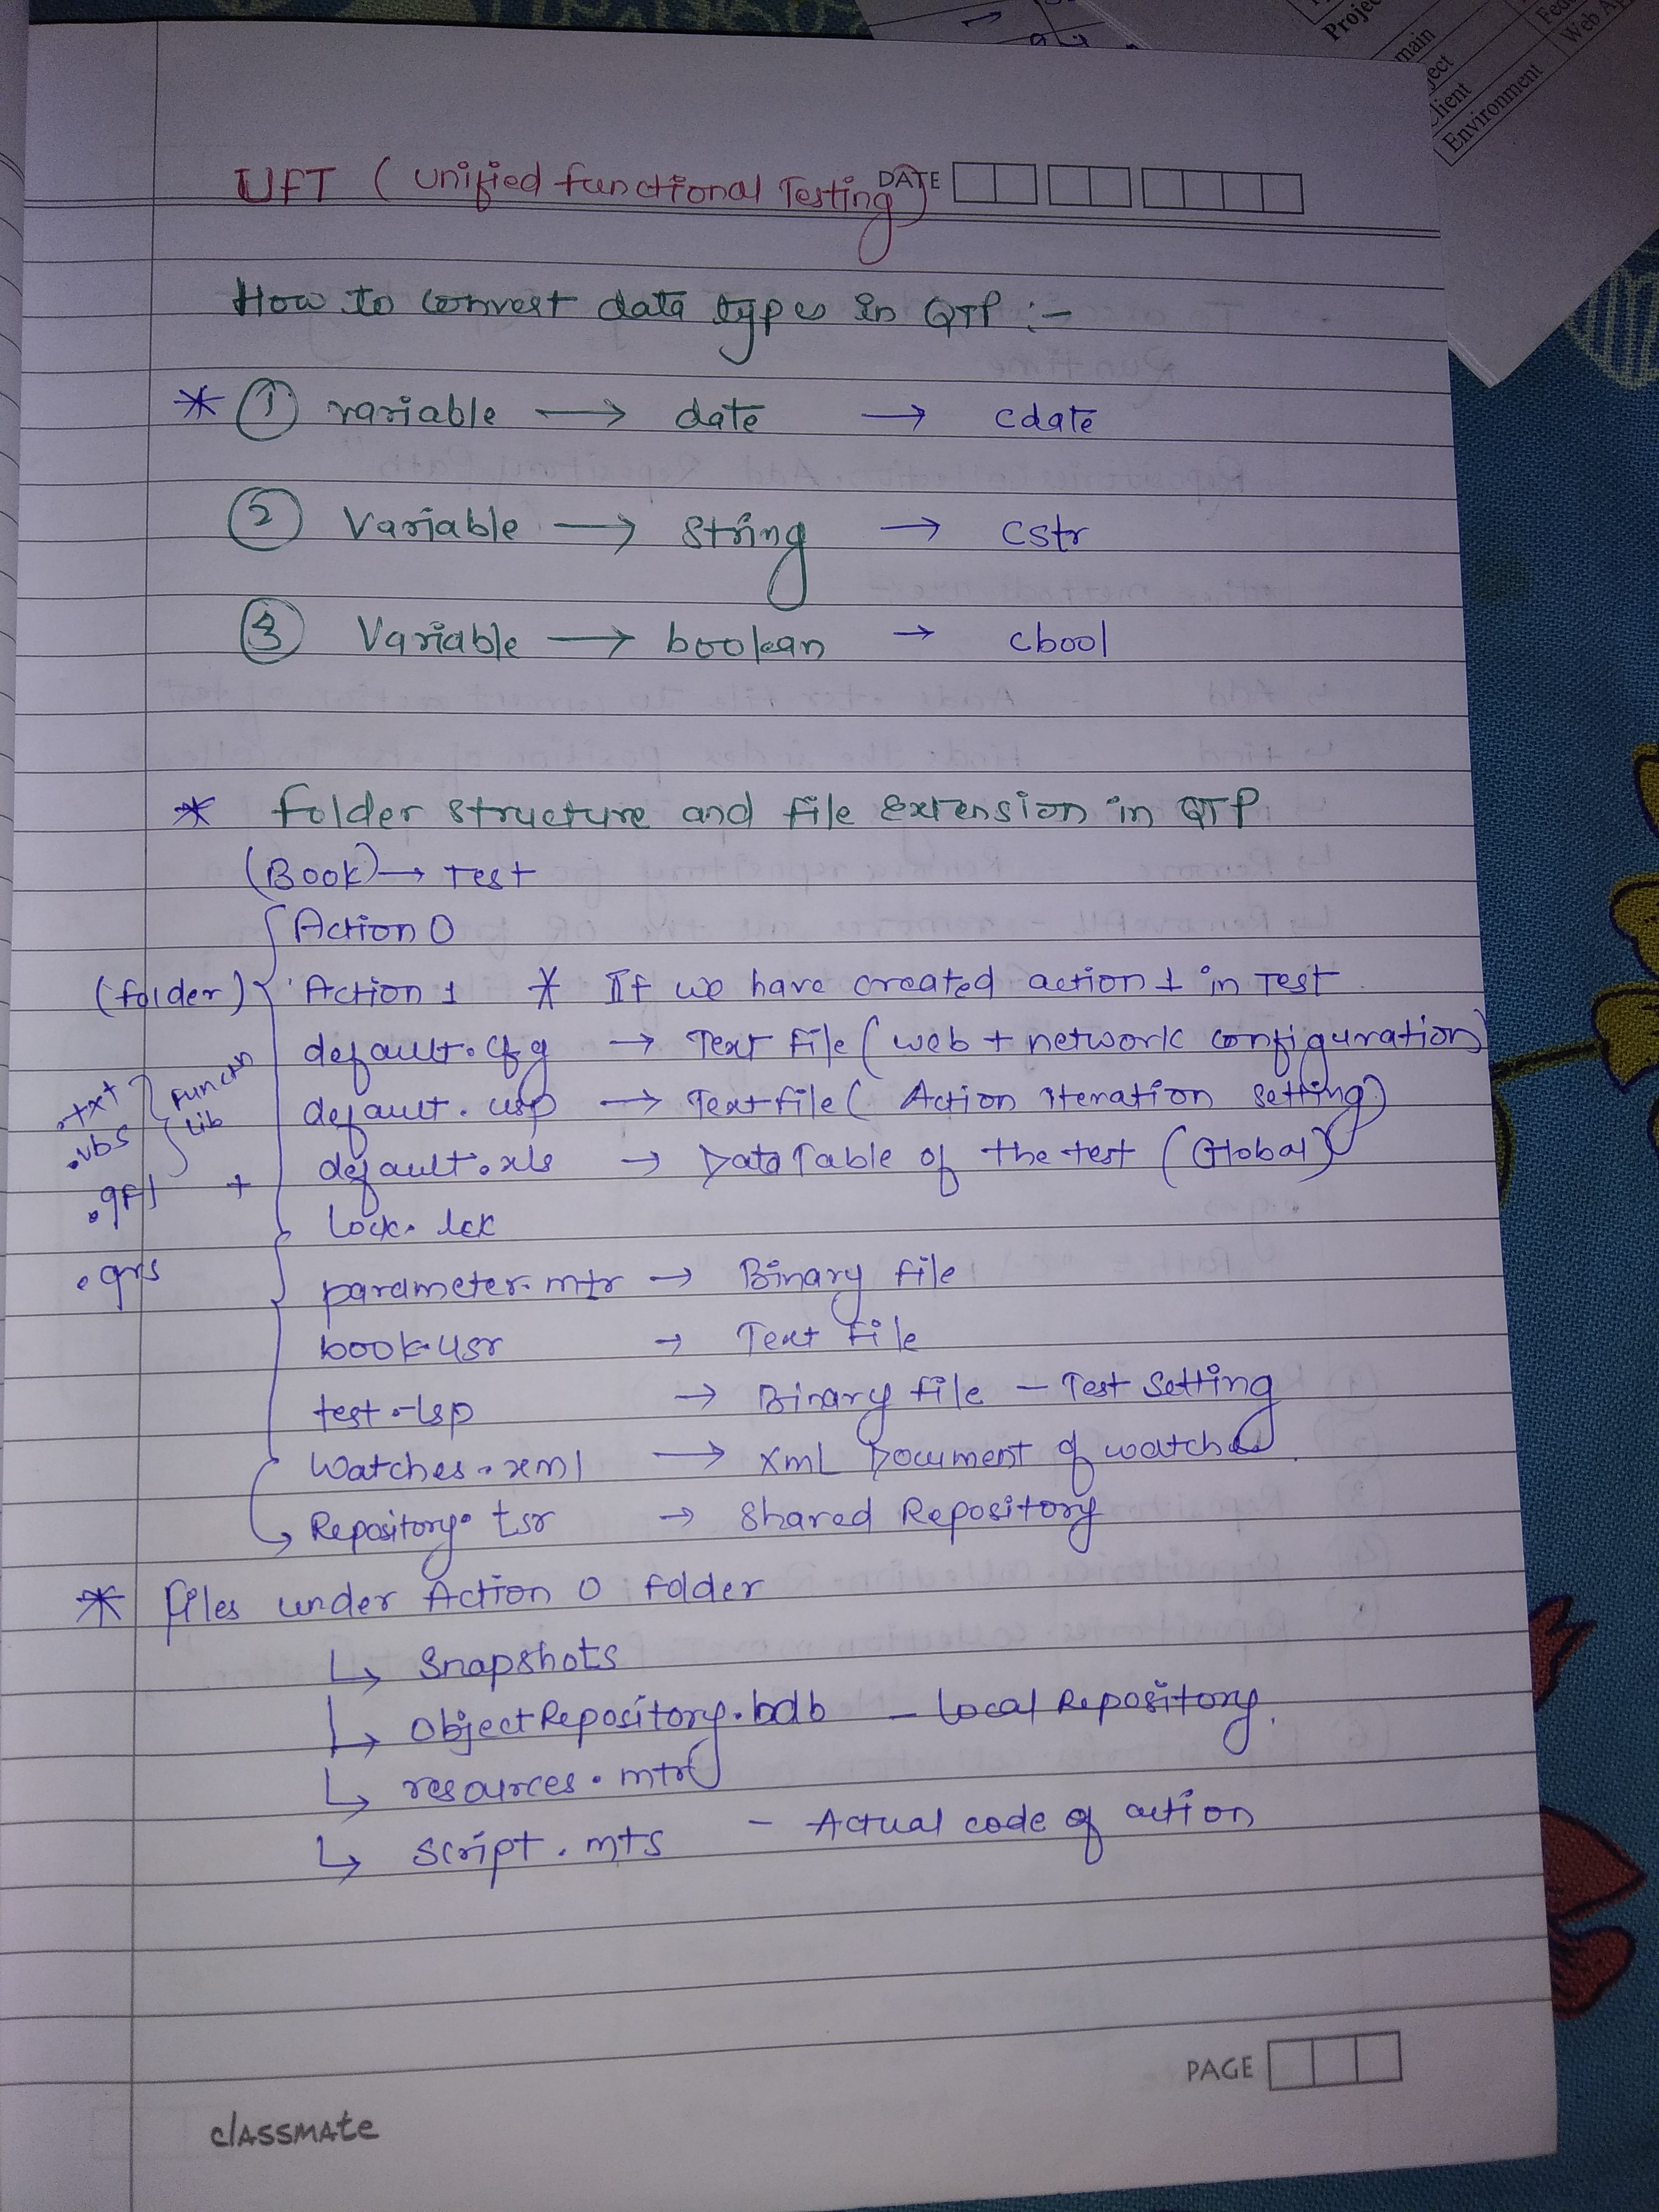 Project
main
ject
Client
Environment
Web
UFT ( Unified Functional Testing)
DATE
How to convert data types in QTP :-
* ① variable → date → cdate
② Variable → String → cstr
③ Variable → boolean → cbool
* Folder structure and file Extension in QTP
(Book) → Test
Action 0
(folder) Action 1 * If we have created action 1 in Test
default.cfg → Text file ( web + network configuration)
default.usp → Text file ( Action iteration setting)
default.xls → Data Table of the test (Global)
Lock.lck
parameter.mtr → Binary file
book.usr → Text file
test.tsp → Binary file - Test Setting
Watches.xml → XML Document of watches
Repository.tsr → Shared Repository
.txt
.vbs
Function
Lib
.qfl +
.qrs
* Files under Action 0 folder
↳ Snapshots
↳ ObjectRepository.bdb - Local Repository.
↳ resources.mtr
↳ script.mts - Actual code of action
PAGE
classmate